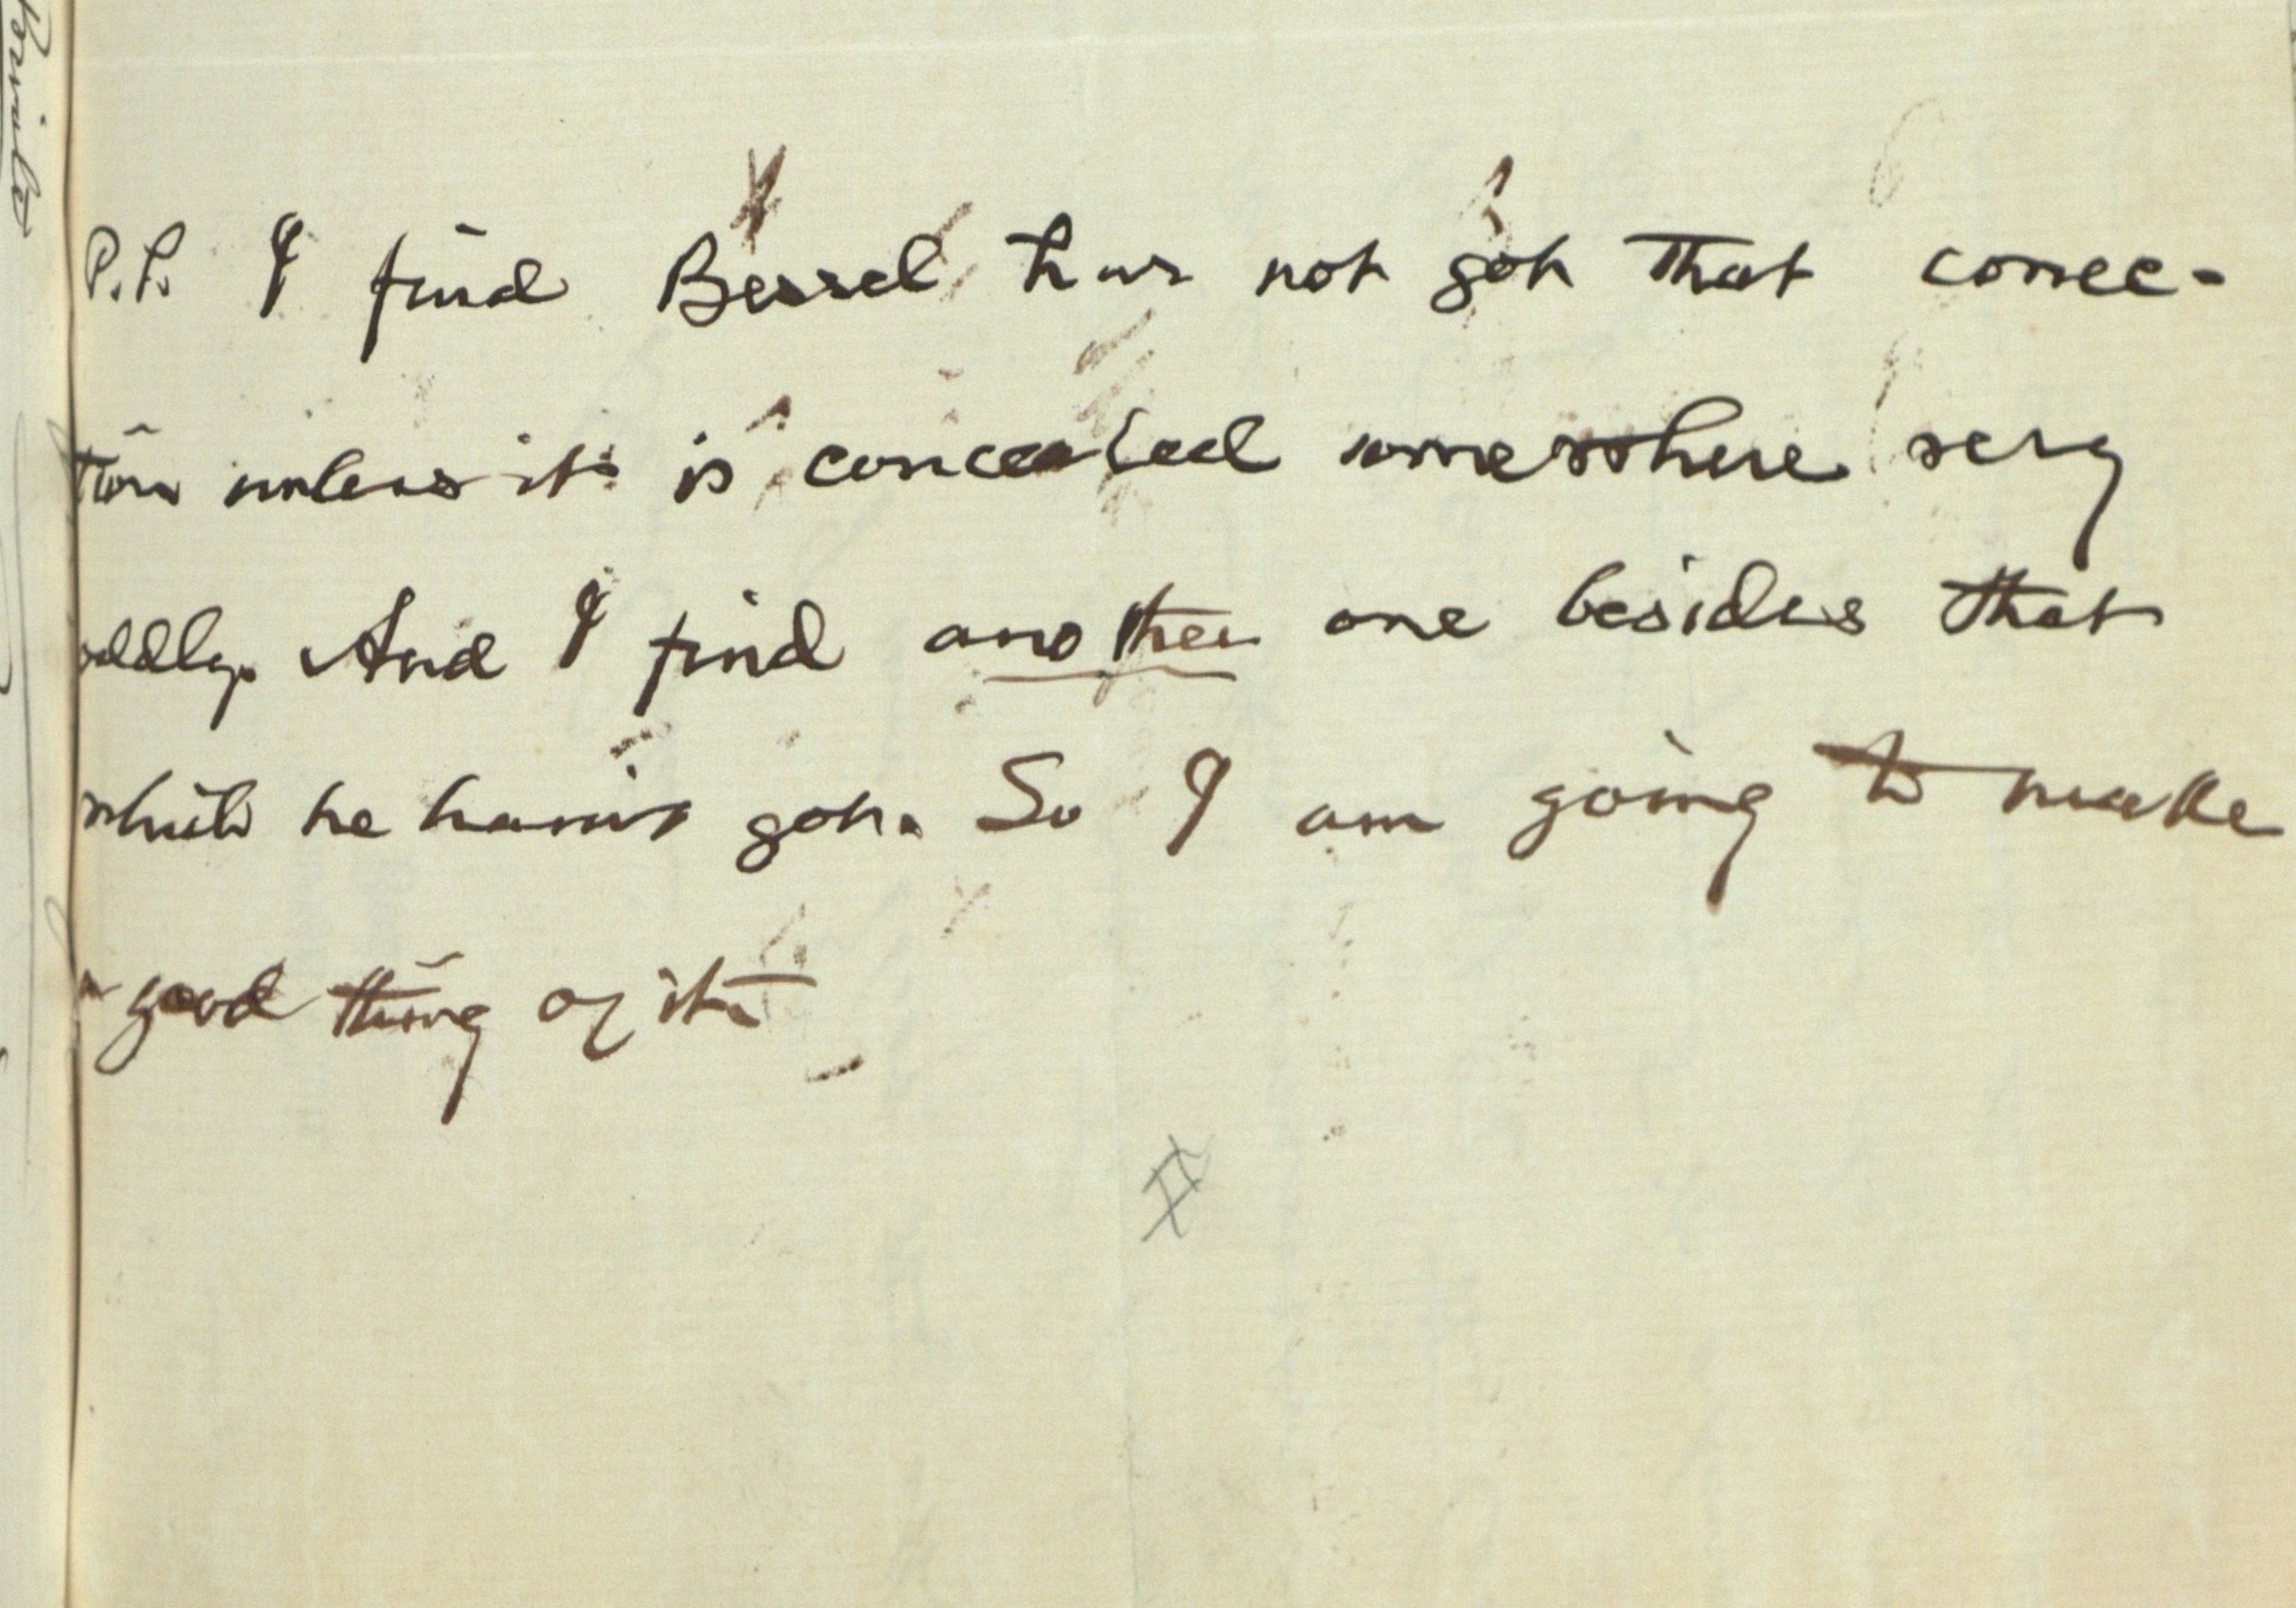 Private
P.S. I find Bessel has not got that correc-
tion unless it is concealed somewhere very
oddly. And I find another one besides that
which he hasn't got. So I am going to make
a good thing of it.